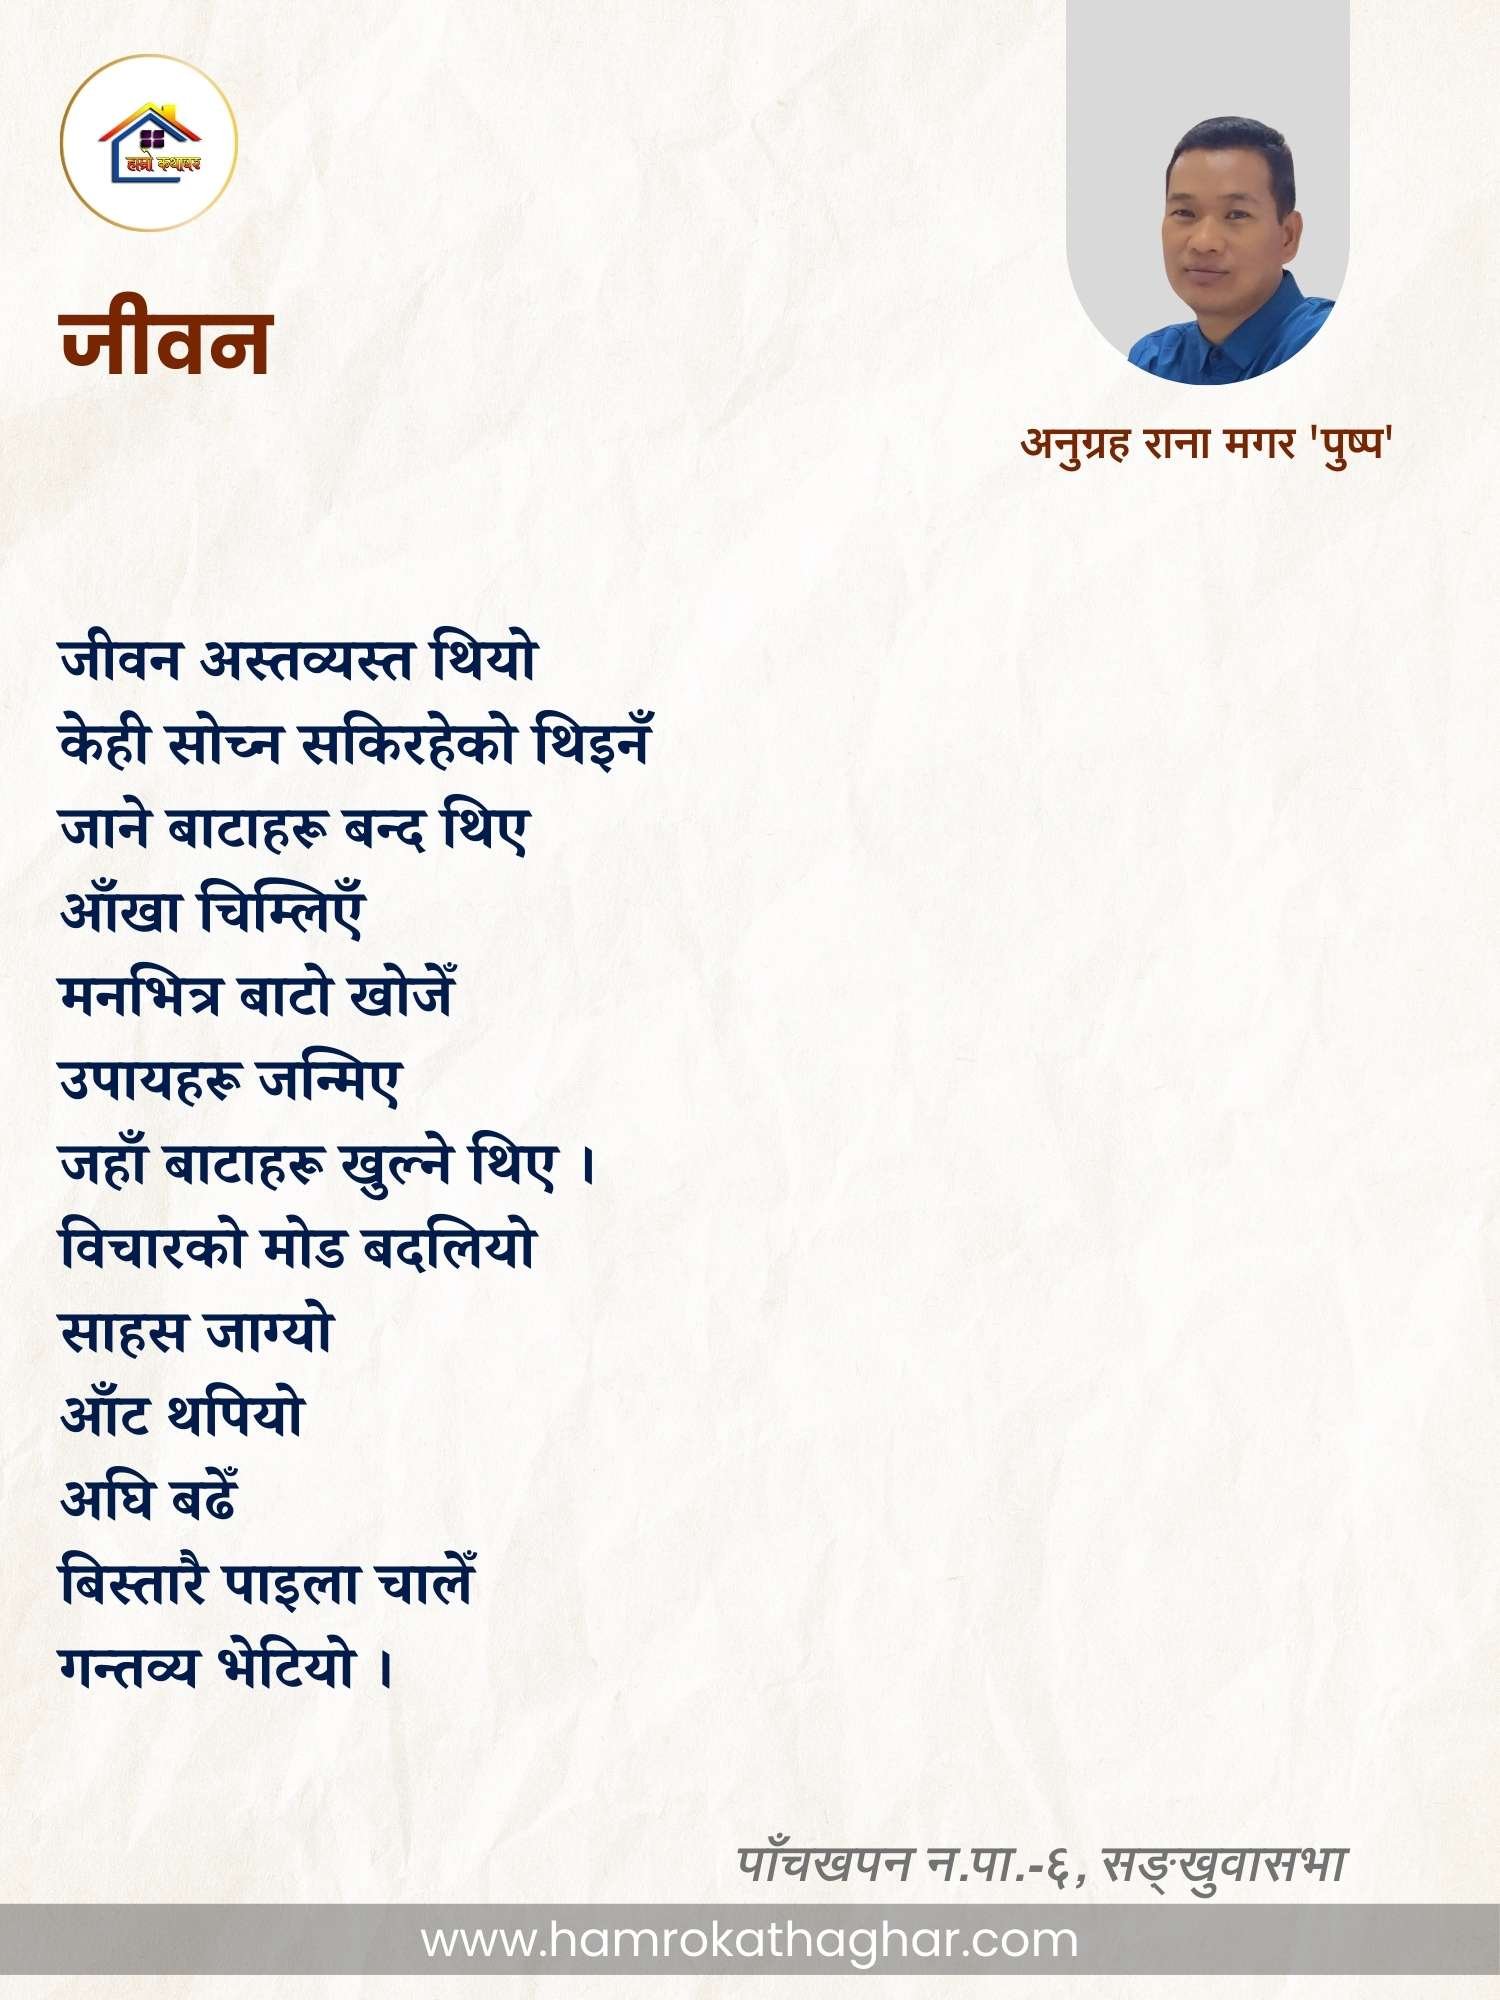 हाम्रो कथाघर
जीवन
अनुग्रह राना मगर 'पुष्प'
जीवन अस्तव्यस्त थियो
केही सोच्न सकिरहेको थिइनँ
जाने बाटाहरू बन्द थिए
आँखा चिम्लिएँ
मनभित्र बाटो खोजेँ
उपायहरू जन्मिए
जहाँ बाटाहरू खुल्ने थिए ।
विचारको मोड बदलियो
साहस जाग्यो
आँट थपियो
अघि बढेँ
बिस्तारै पाइला चालेँ
गन्तव्य भेटियो ।
पाँचखपन न.पा.-६, सङ्खुवासभा
www.hamrokathaghar.com